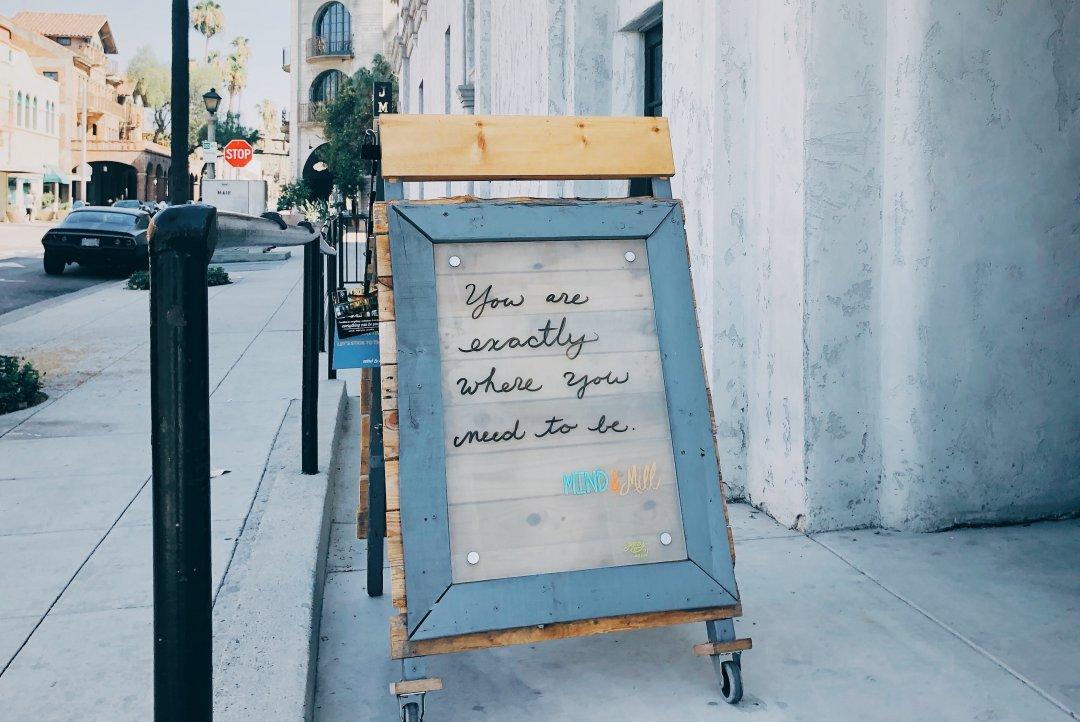 JM
STOP
You are
exactly
where you
need to be.
MIND & Mill